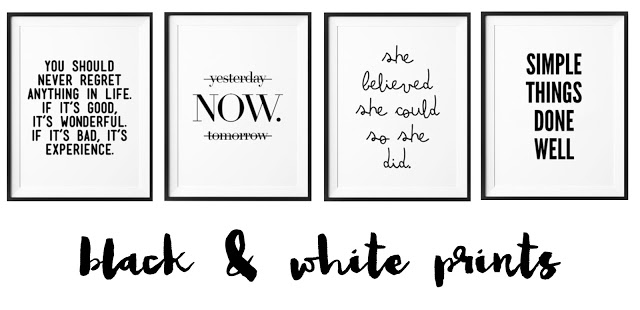 YOU SHOULD
NEVER REGRET
ANYTHING IN LIFE.
IF IT'S GOOD,
IT'S WONDERFUL.
IF IT'S BAD, IT'S
EXPERIENCE.
yesterday
NOW.
tomorrow
she
believed
she could
so she
did.
SIMPLE
THINGS
DONE
WELL
black & white prints